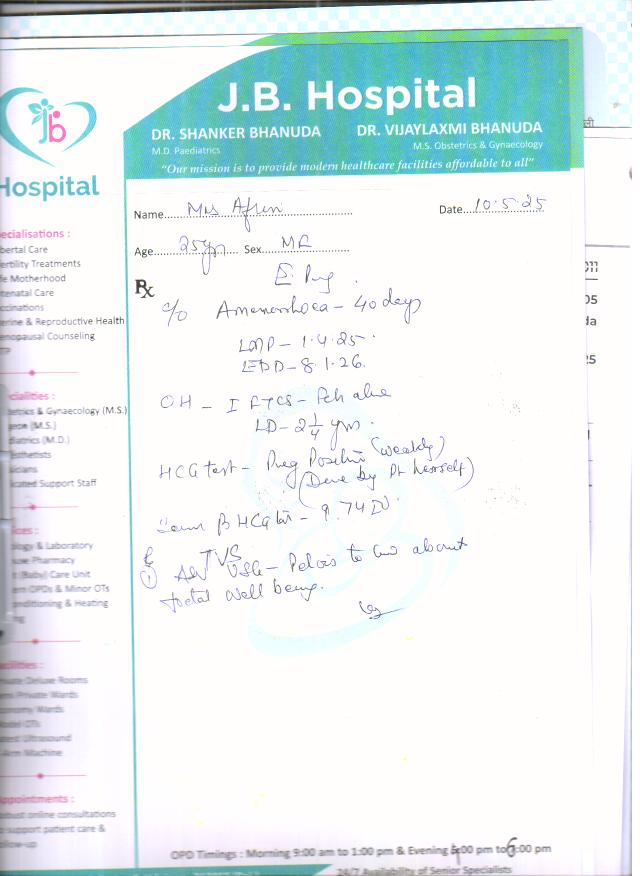 J.B. Hospital
DR. SHANKER BHANUDA DR. VIJAYLAXMI BHANUDA
M.D. Paediatrics M.S. Obstetrics & Gynaecology
"Our mission is to provide modern healthcare facilities affordable to all"
Jb
Hospital
Name Mrs Afrin Date 10.5.25
Age 25yr Sex
Rx
E. Preg.
c/o Amenorrhoea - 40 days
LMP - 1.4.25.
EDD - 8.1.26.
OH - I FTCS - alive
LD - 2 1/4 yrs.
HCG test - Preg Positive (weakly)
(Done by Pt herself)
Serum β HCG - 9.74 IU.
TVS
① Adv USG - Pelvis to about
foetal well being.
ecialisations :
bertal Care
ertility Treatments
fe Motherhood
tenatal Care
ccinations
erine & Reproductive Health
enopausal Counseling
TP
cialities :
tetrics & Gynaecology (M.S.)
(M.S.)
diatrics (M.D.)
sthetists
icians
icated Support Staff
ices :
ology & Laboratory
use Pharmacy
(Baby) Care Unit
rn OPDs & Minor OTs
onditioning & Heating
ng
cilities :
rivate Deluxe Rooms
Private Wards
onomy Wards
OTs
atest Ultrasound
-Arm Machine
ppointments :
obust online consultations
o support patient care &
ollow-up
OPD Timings : Morning 9:00 am to 1:00 pm & Evening :00 pm to 6:00 pm
24/7 Availability of Senior Specialists
011
05
da
25